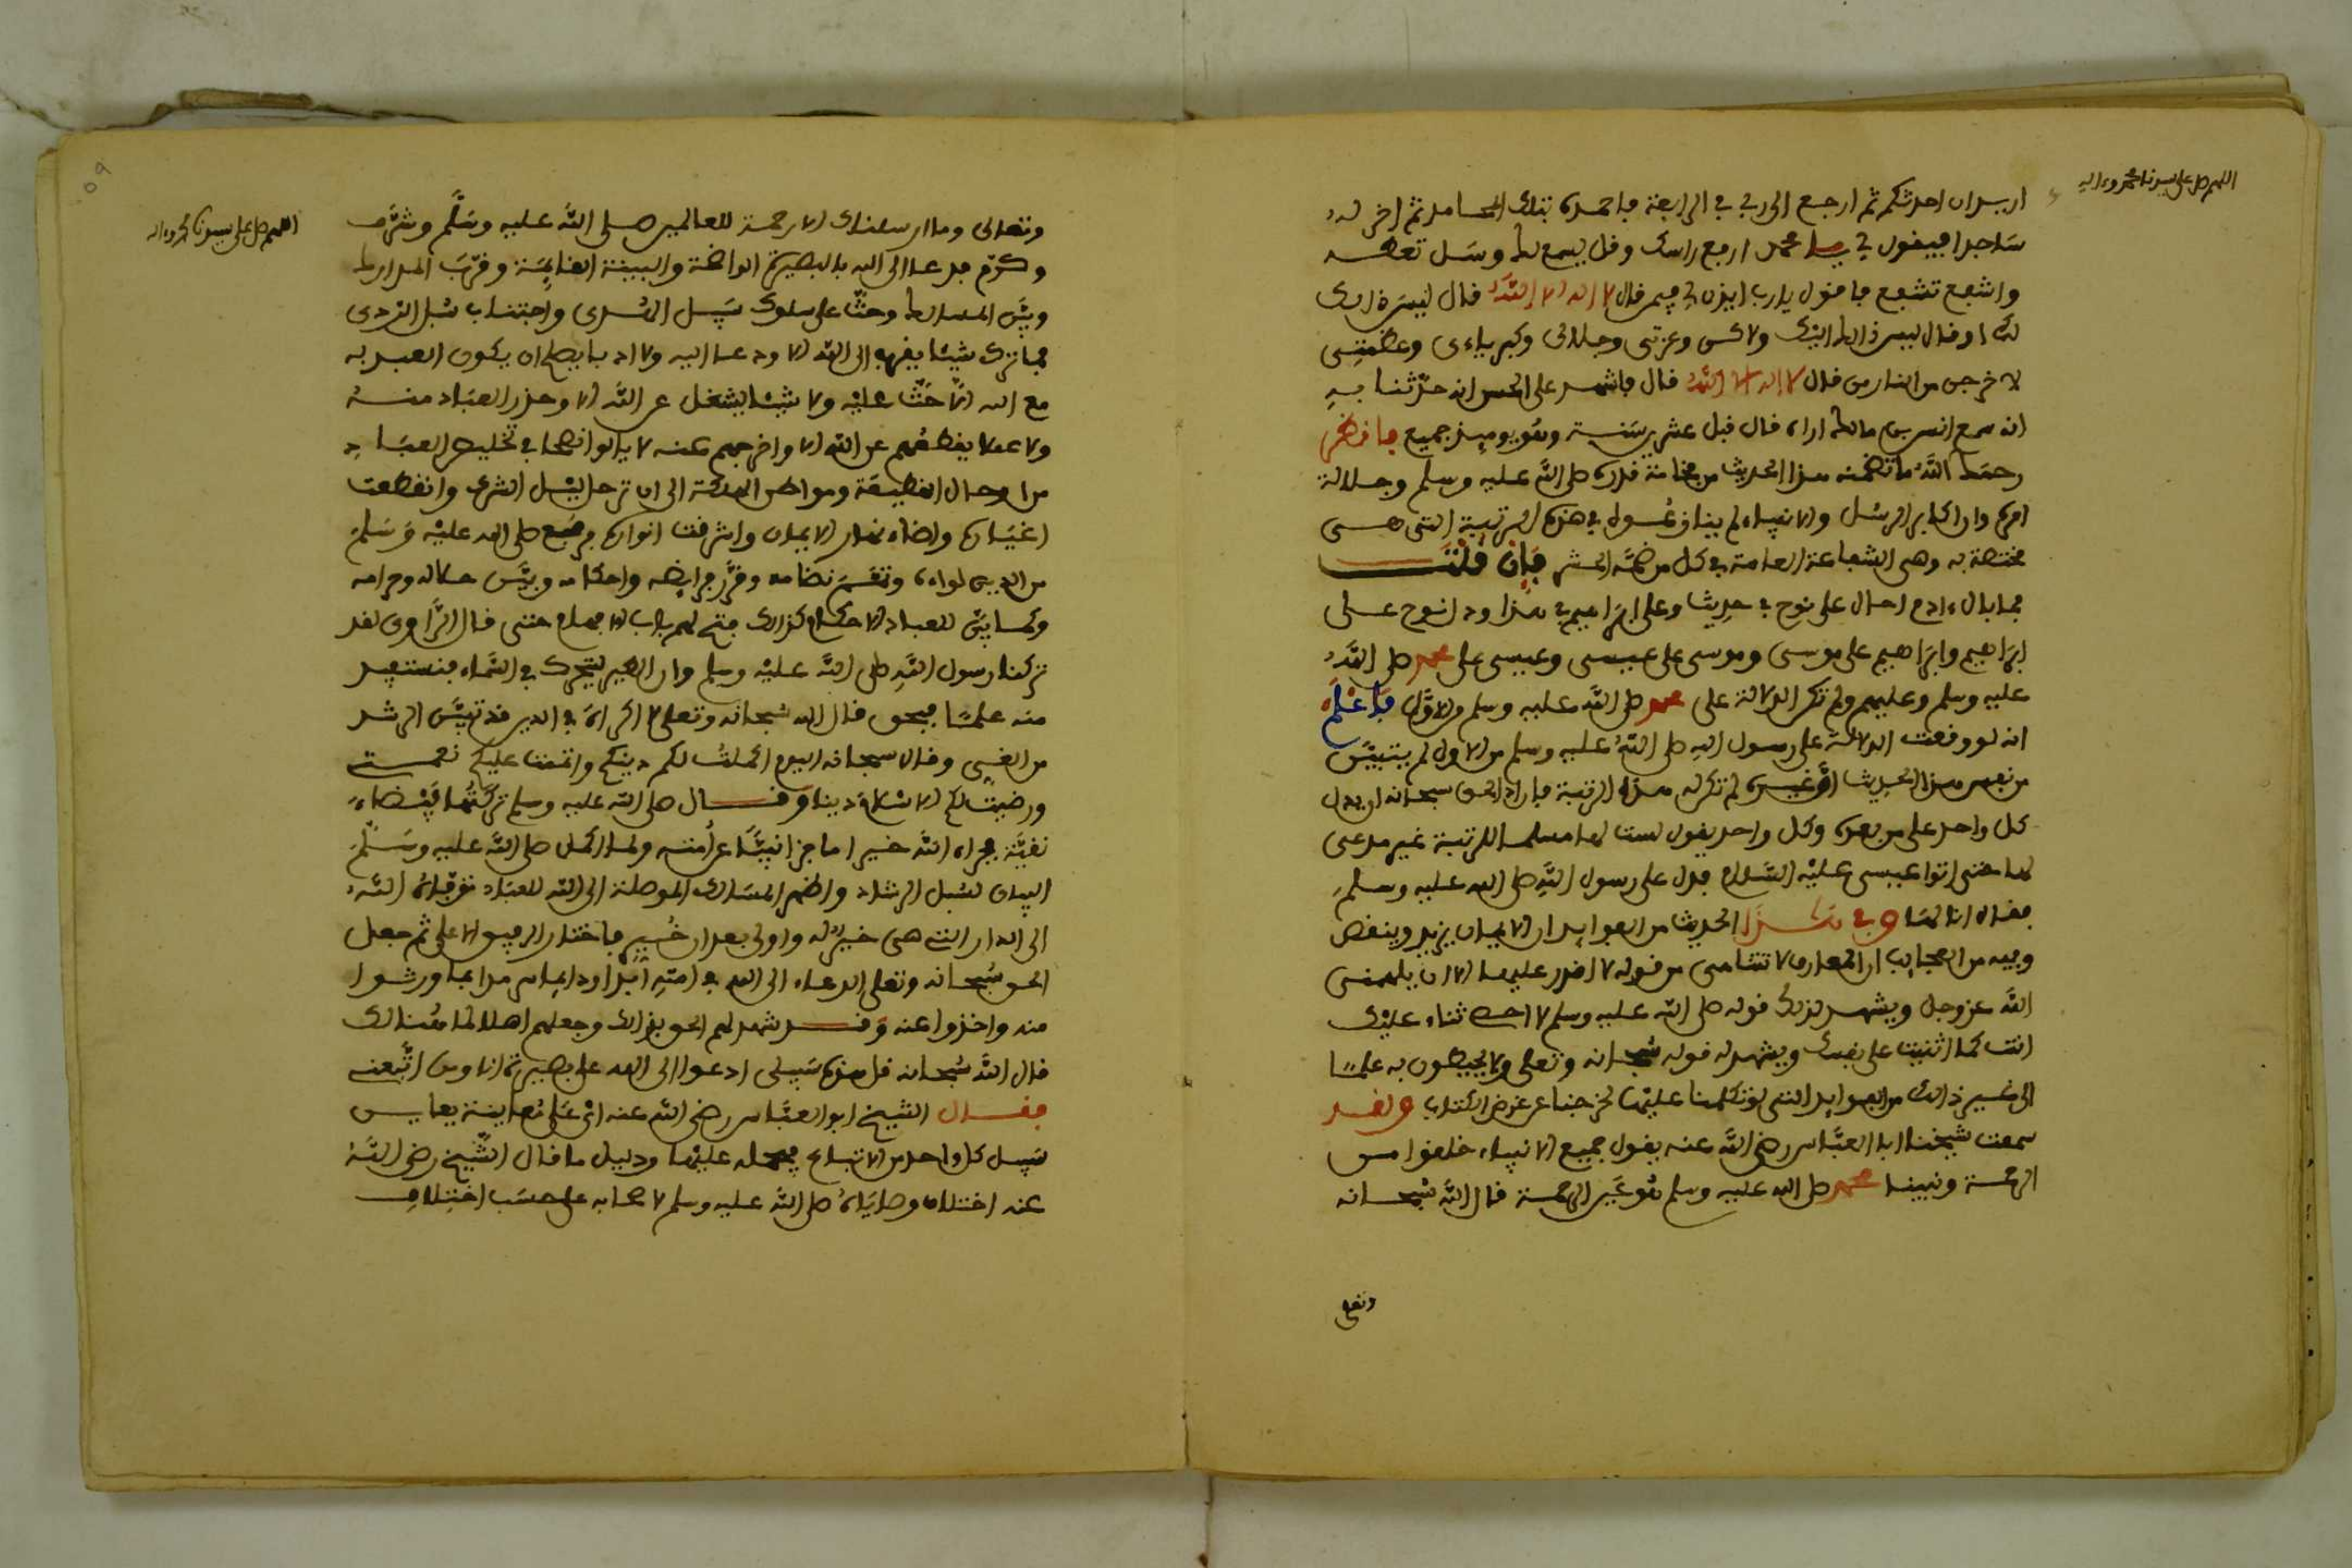 اللهم صل على سيدنا محمد وءاله
اريد ان احدثكم ثم ارجع الى ربي في الرابعة فاحمده بتلك المحامد ثم اخر له
ساجدا فيقول لي يا محمد ارفع راسك وقل يسمع لك وسل تعطه
واشفع تشفع فاقول يا رب ايذن لي فيمن قال لا اله الا الله قال ليس ذلك
لك او قال ليس ذلك اليك ولكن وعزتي وجلالي وكبرياءي وعظمتي
لاخرجن من النار من قال لا اله الا الله قال فاشهد على الحسن انه حدثنا به
انه سمع انس بن مالك اراه قال قبل عشرين سنة وهو يوميذ جميع فانظر
رحمك الله ما تضمنه هذا الحديث من فخامة قدره صلى الله عليه وسلم وجلالة
امره وان اكابر الرسل والانبياء لم ينازعوه في هذه الرتبة التي هي
مختصة به وهي الشفاعة العامة في كل من ضمه المحشر فإن قلت
فما بال ءادم احال على نوح في حديث وعلى ابراهيم في هذا ودل نوح على
ابراهيم وابراهيم على موسى وموسى على عيسى وعيسى على محمد صلى الله
عليه وسلم وعليهم ولم تكن الدلالة على محمد صلى الله عليه وسلم من الاول فاعلم
انه لو وقعت الدلالة على رسول الله صلى الله عليه وسلم من الاول لم يتبين
من نفس هذا الحديث ان غيره لم تكن له هذه الرتبة فاراد الحق سبحانه ان يدل
كل واحد على من بعده وكل واحد يقول لست لها مسلما للرتبة غير مدعي
لها حتى اتوا عيسى عليه السلام فدل على رسول الله صلى الله عليه وسلم
فقال انا لها وفي هذا الحديث من الفوايد ان الايمان يزيد وينقص
وفيه من العجايب ان المعارف لا تتناهى من قوله لا اقدر عليها الا ان يلهمني
الله عز وجل ويشهد لذلك قوله صلى الله عليه وسلم لا احصي ثناء عليك
انت كما اثنيت على نفسك ويشهد له قوله سبحانه وتعلى ولا يحيطون به علما
الى غير ذلك من الفوايد التي لو تكلمنا عليها لخرجنا عن غرض الكتاب ولقد
سمعت شيخنا ابا العباس رضي الله عنه يقول جميع الانبياء خلقوا من
الرحمة ونبينا محمد صلى الله عليه وسلم هو عين الرحمة قال الله سبحانه
وتعلى
اللهم صل على سيدنا محمد وءاله
وتعالى وما ارسلناك الا رحمة للعالمين صلى الله عليه وسلم وشرف
وكرم فدعا الى الله بالبصيرة الواضحة والبينة القايمة وقرب المدارك
وبين المسالك وحث على سلوك سبيل الهدى واجتناب سبل الردى
فما ترك شيئا يقرب الى الله الا ودعا اليه ولا ادبا يصلح ان يكون العبد به
مع الله الا حث عليه ولا شيئا يشغل عن الله الا وحذر العباد منه
ولا عملا يقطعهم عن الله الا واخرجهم عنه لا يالوا نصحا في تخليص العباد
من اوحال القطيعة ومواطن الهلكة الى ان ترحل ليل الشرك وانقطعت
اغياره واضاء نهار الايمان واشرقت انواره فرفع صلى الله عليه وسلم
من الدين لواءه وتمم نظامه وقرر فرايضه واحكامه وبين حلاله وحرامه
وكما بين للعباد الاحكام كذلك فتح لهم باب الافهام حتى قال الراوي لقد
تركنا رسول الله صلى الله عليه وسلم وان الطير ليتحرك في السماء فنستفيد
منه علما فبحق قال الله سبحانه وتعلى لا اكراه في الدين قد تبين الرشد
من الغي وقال سبحانه اليوم اكملت لكم دينكم واتممت عليكم نعمتي
ورضيت لكم الاسلام دينا وقال صلى الله عليه وسلم تركتها بيضاء
نقية فجزاه الله خيرا ما جزا نبيا عن امته ولما اكمل صلى الله عليه وسلم
البيان لسبل الرشاد واظهر المسالك الموصلة الى الله للعباد توفاه الله
الى الدار التي هي خير له واولى بعد ان خير فاختار الرفيق الاعلى ثم جعل
الحق سبحانه وتعلى الدعاء الى الله في امته ابدا ودايما من ما ورثوا
منه واخذوا عنه وقد شهد لهم الحق بذلك وجعلهم اهلا لما هنالك
قال الله سبحانه قل هذه سبيلي ادعوا الى الله على بصيرة انا ومن اتبعني
فقال الشيخ ابو العباس رضي الله عنه اي على معاينة يعاين
سبيل كل واحد من الاتباع فيحمله عليها ودليل ما قال الشيخ رضي الله
عنه اختلاف وصاياه صلى الله عليه وسلم لاصحابه على حسب اختلاف